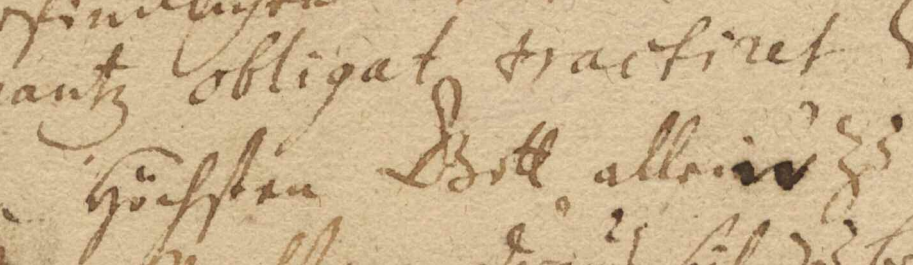 gantz obligat tractiret
Höchsten Gott allein' zu